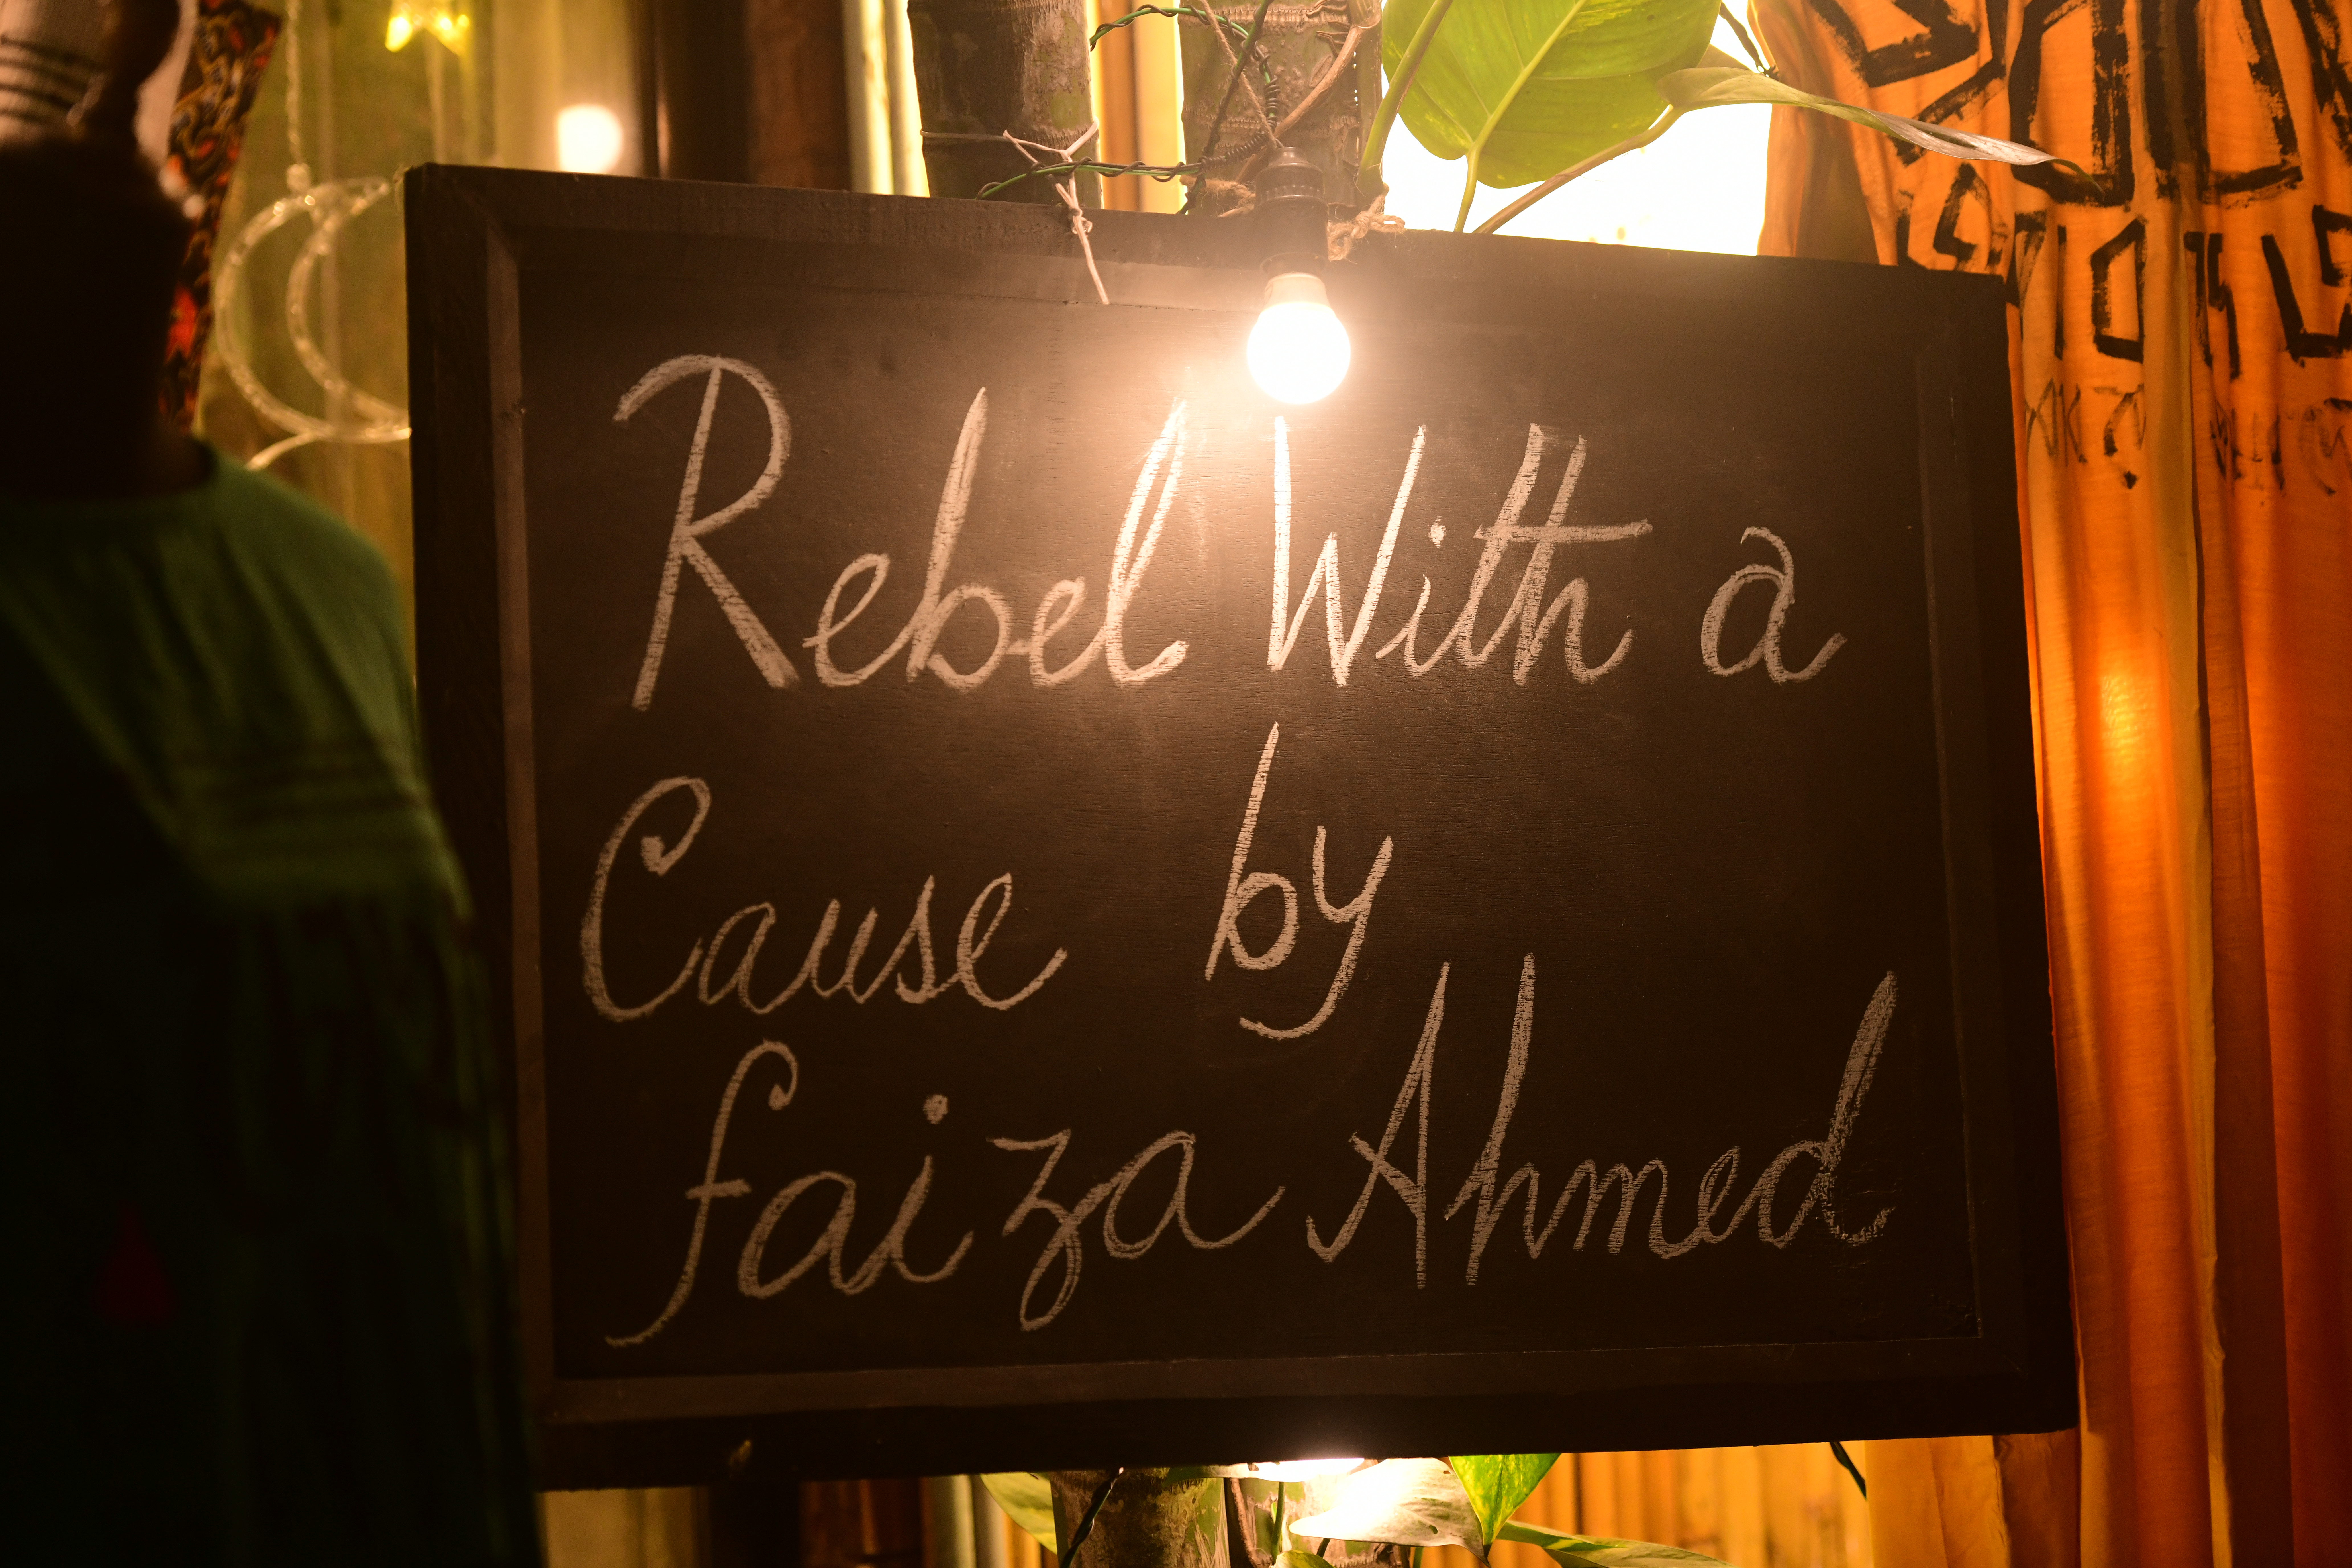 Rebel With a
Cause by
faiza Ahmed